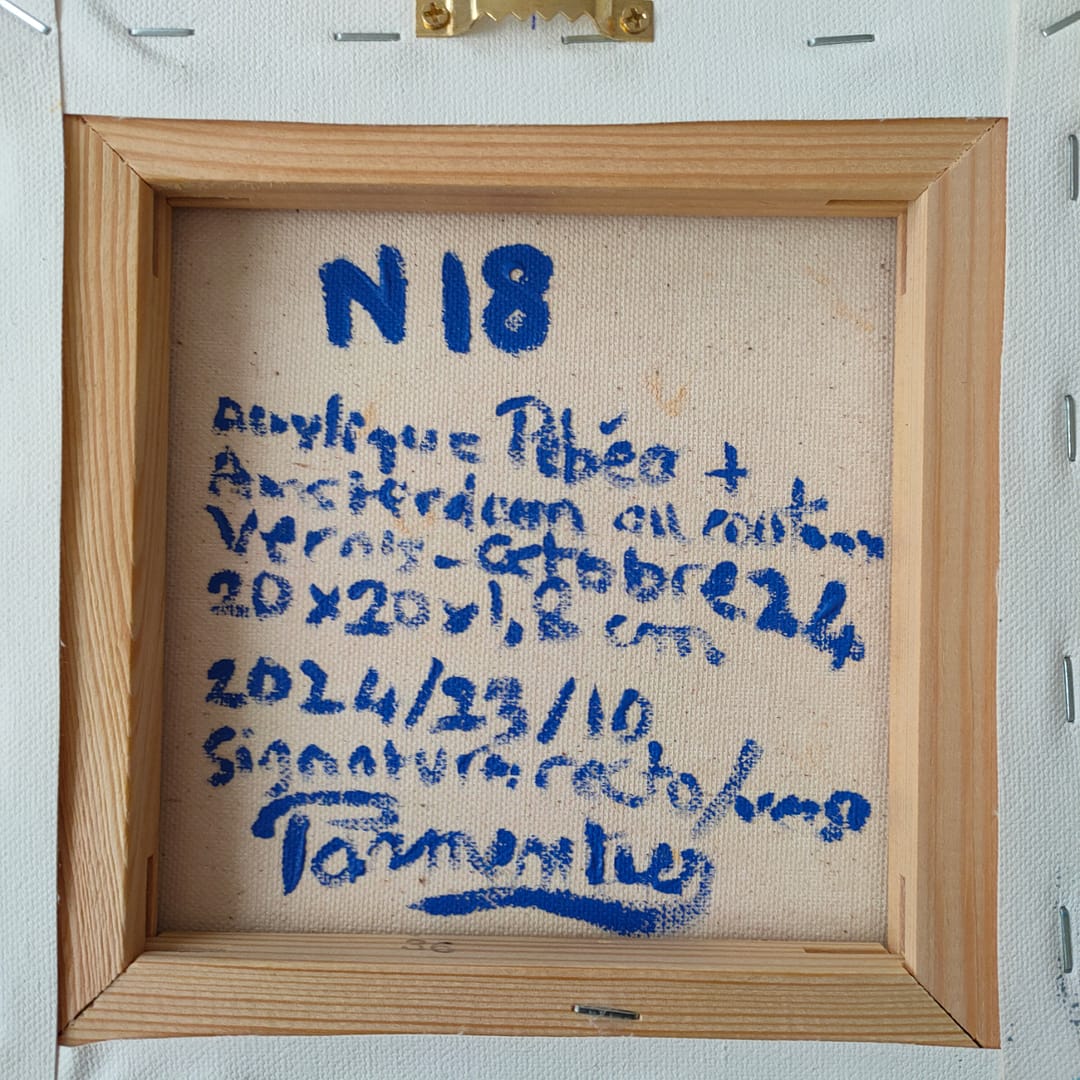 N 18
acrylique Pébéo +
Amsterdam au couteau
Vernis - Octobre 24
20 x 20 x 1,8 cm
2024/23/10
Signature recto/verso
Parmentier
36